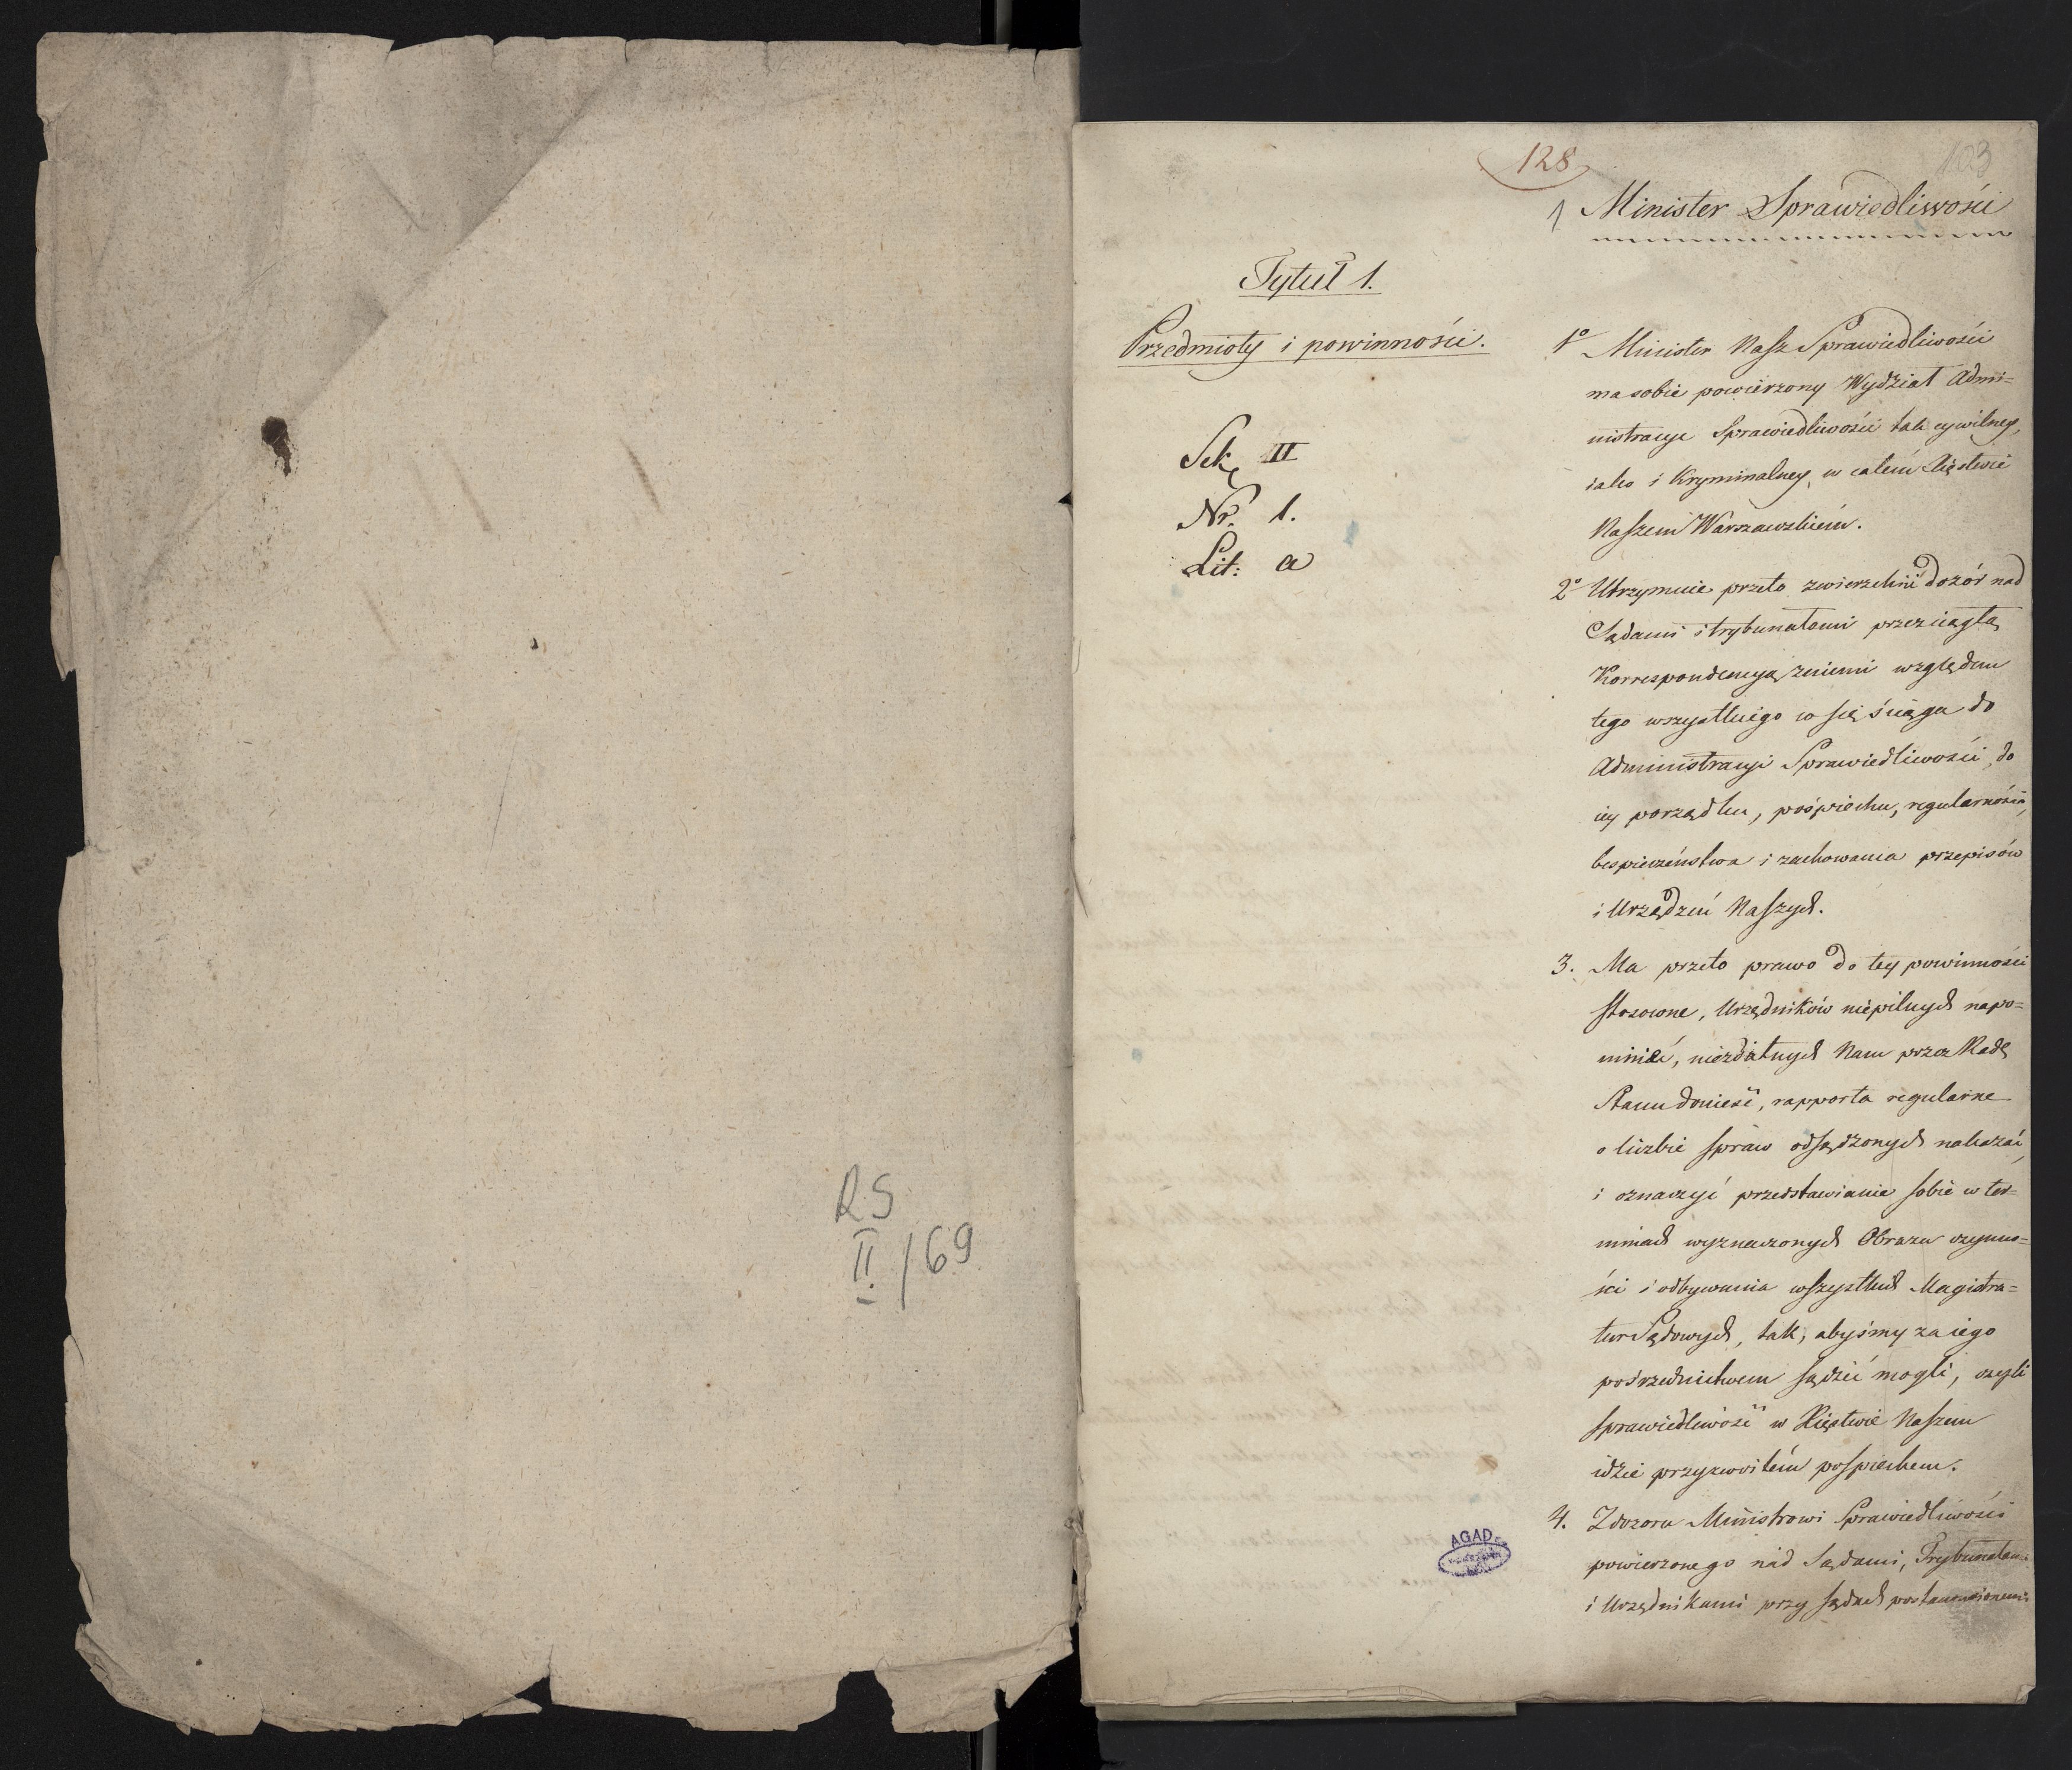 RS
II./69
128
103
1 Minister Sprawiedliwości
Tytuł 1.
Przedmioty i powinności.
Sek. II
Nr. 1.
Lit: a
1o Minister Nasz Sprawiedliwości
ma sobie powierzony Wydział Admi=
nistracyi Sprawiedliwości tak cywilney,
iako i Kryminalney, w całem Xięstwie
Naszem Warszawskiém.
2o Utrzymuie przeto zwierzchni dozór nad
Sądami i trybunałami przez ciągłą
Korrespondencyą z niemi względem
tego wszystkiego co się ściąga do
Administracyi Sprawiedliwości, do
iey porządku, pośpiechu, regularności,
bespieczeństwa i zachowania przepisów
i Urządzeń Naszych.
3. Ma przeto prawo do tey powinności
stosowne, Urzędników niepilnych napo=
minać, niezdatnych Nam przez Radę
Stanu donieść, rapporta regularne
o liczbie spraw odsądzonych nakazać,
i oznaczyć przedstawianie sobie w ter=
minach wyznaczonych Obrazu czynno=
ści i odbywania wszystkich Magistra=
tur Sądowych, tak, abyśmy za iego
pośrzednictwem sądzić mogli, czyli
sprawiedliwość w Xięstwie Naszem
idzie przyzwoitém pospiechem.
4. Z dozoru Ministrowi Sprawiedliwości
powierzonego nad Sądami, Trybunałami
i Urzędnikami przy sądach postanowionemi
AGAD